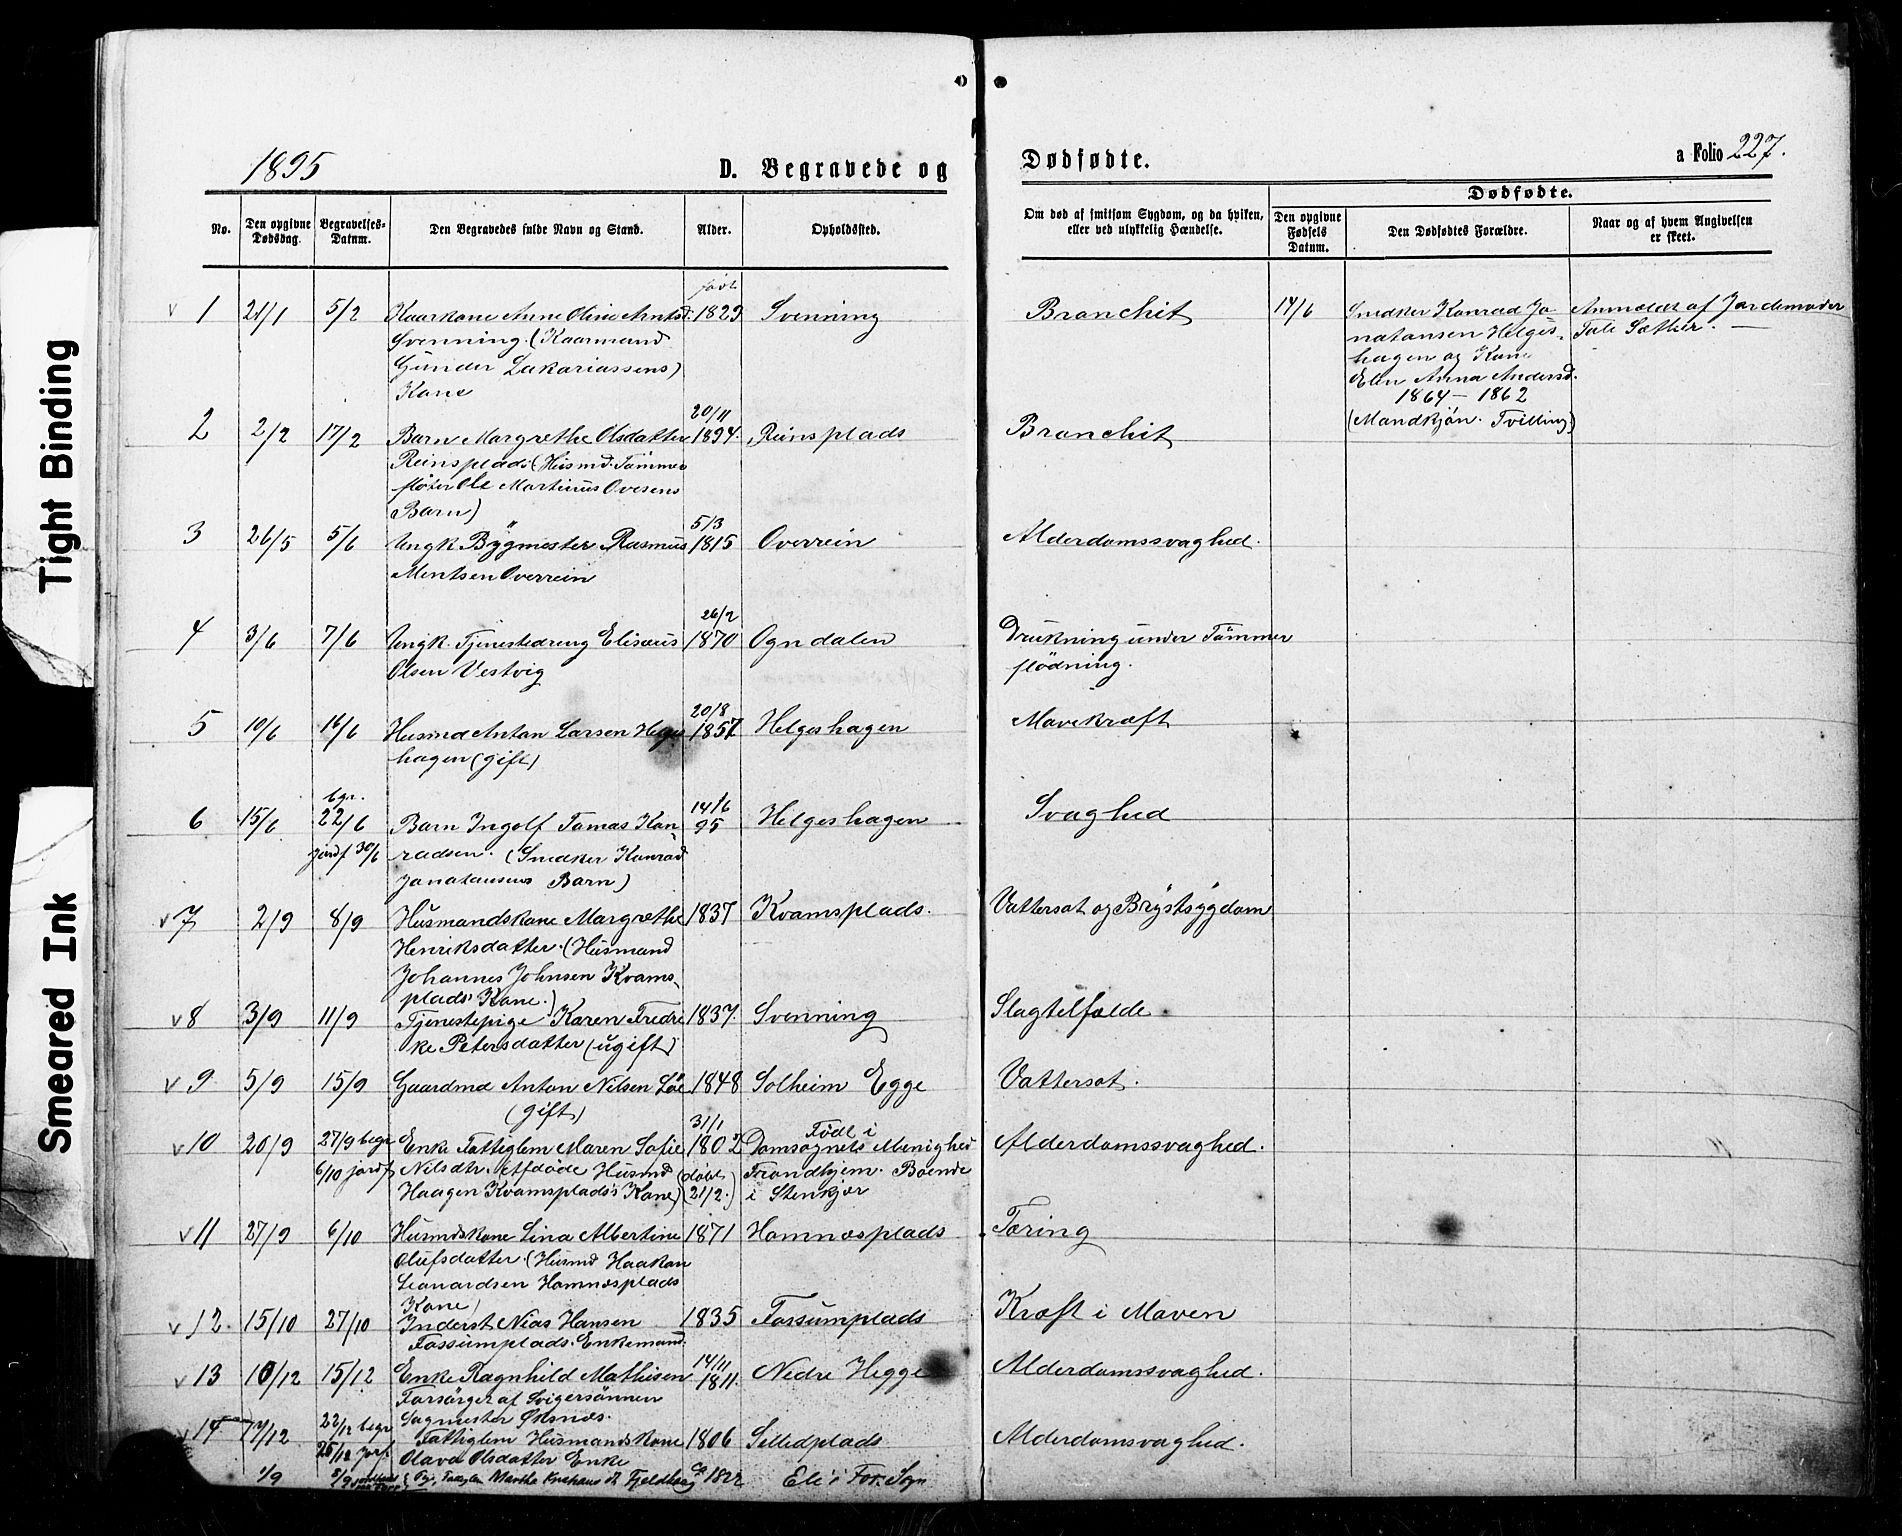 1895
D. Begravede og Dødfødte.
a Folio 227.
No.
Den opgivne Dødsdag.
Begravelses-Datum.
Den Begravedes fulde Navn og Stand.
Alder.
Opholdssted.
Om død af smitsom Sygdom, og da hvilken,
eller ved ulykkelig Hændelse.
Dødfødte.
Den opgivne Fødsels Datum.
Den Dødfødtes Forældre.
Naar og af hvem Angivelsen er skeet.
født
v 1 21/1 5/2 Kaarkone Anne Oline Arntsd. 1829 Svenning Bronchit
Svenning (Kaarmand
Gunder Zakariassens)
Kone
17/6 Snedker Konrad Jo
natansen Helges-
hagen og Kone
Elen Anna Andersd.
1864 – 1862
(Mandkjøn. Tvilling)
Anmeldt af Jordemoder
Tale Sæther. —
20/11
2 2/2 17/2 Barn Margrethe Olsdatter 1894. Reinsplads Bronchit
Reinsplads (Husmd. Tømmer
fløter Ole Martinus Ovesens
Barn)
5/3
3 26/5 5/6 Ungk. Bygmester Rasmus 1815 Overrein Alderdomssvaghed.
Mentsen Overrein
26/2
4 3/6 7/6 Ungk. Tjenestedreng Elisæus 1870 Ogndalen Drukning under Tømmer
Olsen Vestvig
flødning.
20/8
5 10/6 16/6 Husmd Anton Larsen Helges 1857 Helgeshagen Mavekræft
hagen (gift)
bgr. 14/6
6 15/6 22/6 Barn Ingolf Tomas Kon 95 Helgeshagen Svaghed
jordf 30/6 radsen. (Snedker Konrad
Jonatansens Barn)
v 7 2/9 8/9 Husmandskone Margrethe 1837 Kvamsplads. Vattersot og Brystsygdom
Henriksdatter. (Husmand
Johannes Johnsen Kvams-
plads' Kone.)
v 8 3/9 11/9 Tjenestepige Karen Fredri 1837. Svenning Slagtilfælde
ke Petersdatter (ugift)
v 9 5/9 15/9 Gaardmd Anton Nilsen Løe 1848 Solheim Egge Vattersot.
(gift)
31/1 Født i
v 10 20/9 27/9 begr Enke Fattiglem Maren Sofie 1802 Domsognets Menighed Alderdomssvaghed.
6/10 jordf Nilsdtr. Afdøde Husmd (døbt Trondhjem. Boende
Haagen Kvamsplads's Kone) 21/2.) i Stenkjær
v 11 27/9 6/10 Husmdskone Lina Albertine 1871 Hamnæsplads Tæring
Olufsdatter (Husmd Haakon
Leonardsen Hamnæsplads
Kone)
v 12. 15/10 27/10 Inderst Nias Hansen 1835 Fossumplads Kræft i Maven
Fossumplads. Enkemand.
14/11
v 13 10/12 15/12 Enke Ragnhild Mathisen 1811. Nedre Hegge Alderdomssvaghed.
Forsørget af Svigersønnen
Sagmester Øksnæs.
v 14 17/12 22/12 begr Fattiglem Husmandskone 1806 Selliplads Alderdomsvaghed.
26/12 jorf. Olava Olsdatter Enke
1/9 5/9 Pig. Fattiglem Martha 1822 Ele i For. Sogn
Tight Binding
Smeared Ink